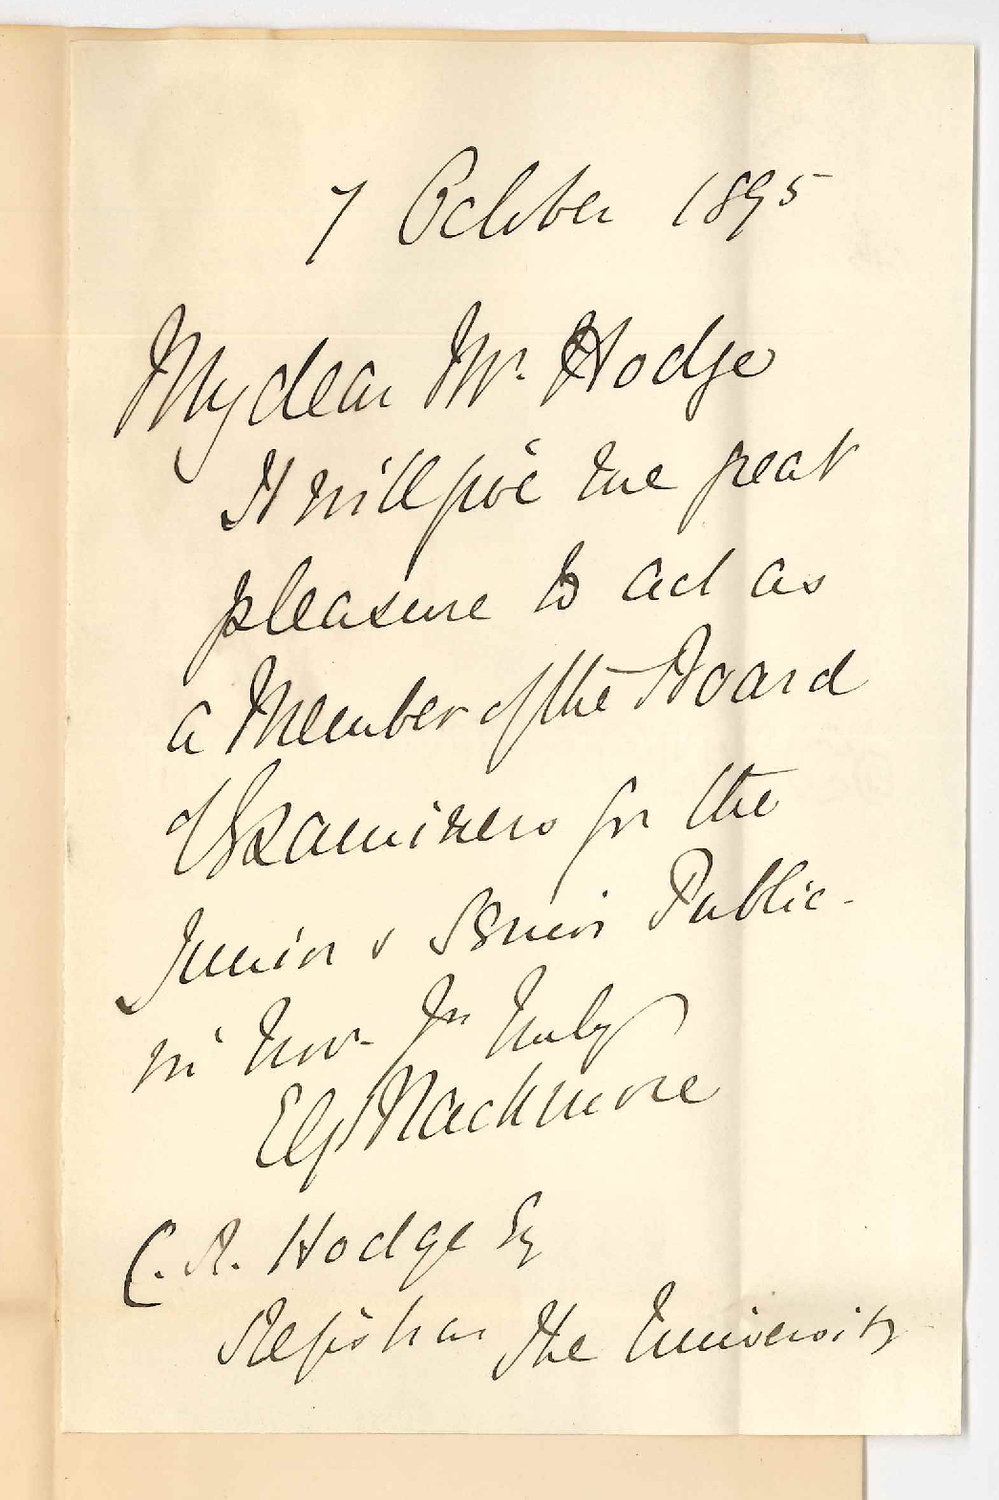 7 October 1895
My dear Mr. Hodge
It will give me great
pleasure to act as
a Member of the Board
of Examiners for the
Junior & Senior Public.
in Nov. Yrs truly
E G Blackmore
C. R. Hodge Esq
Registrar The University